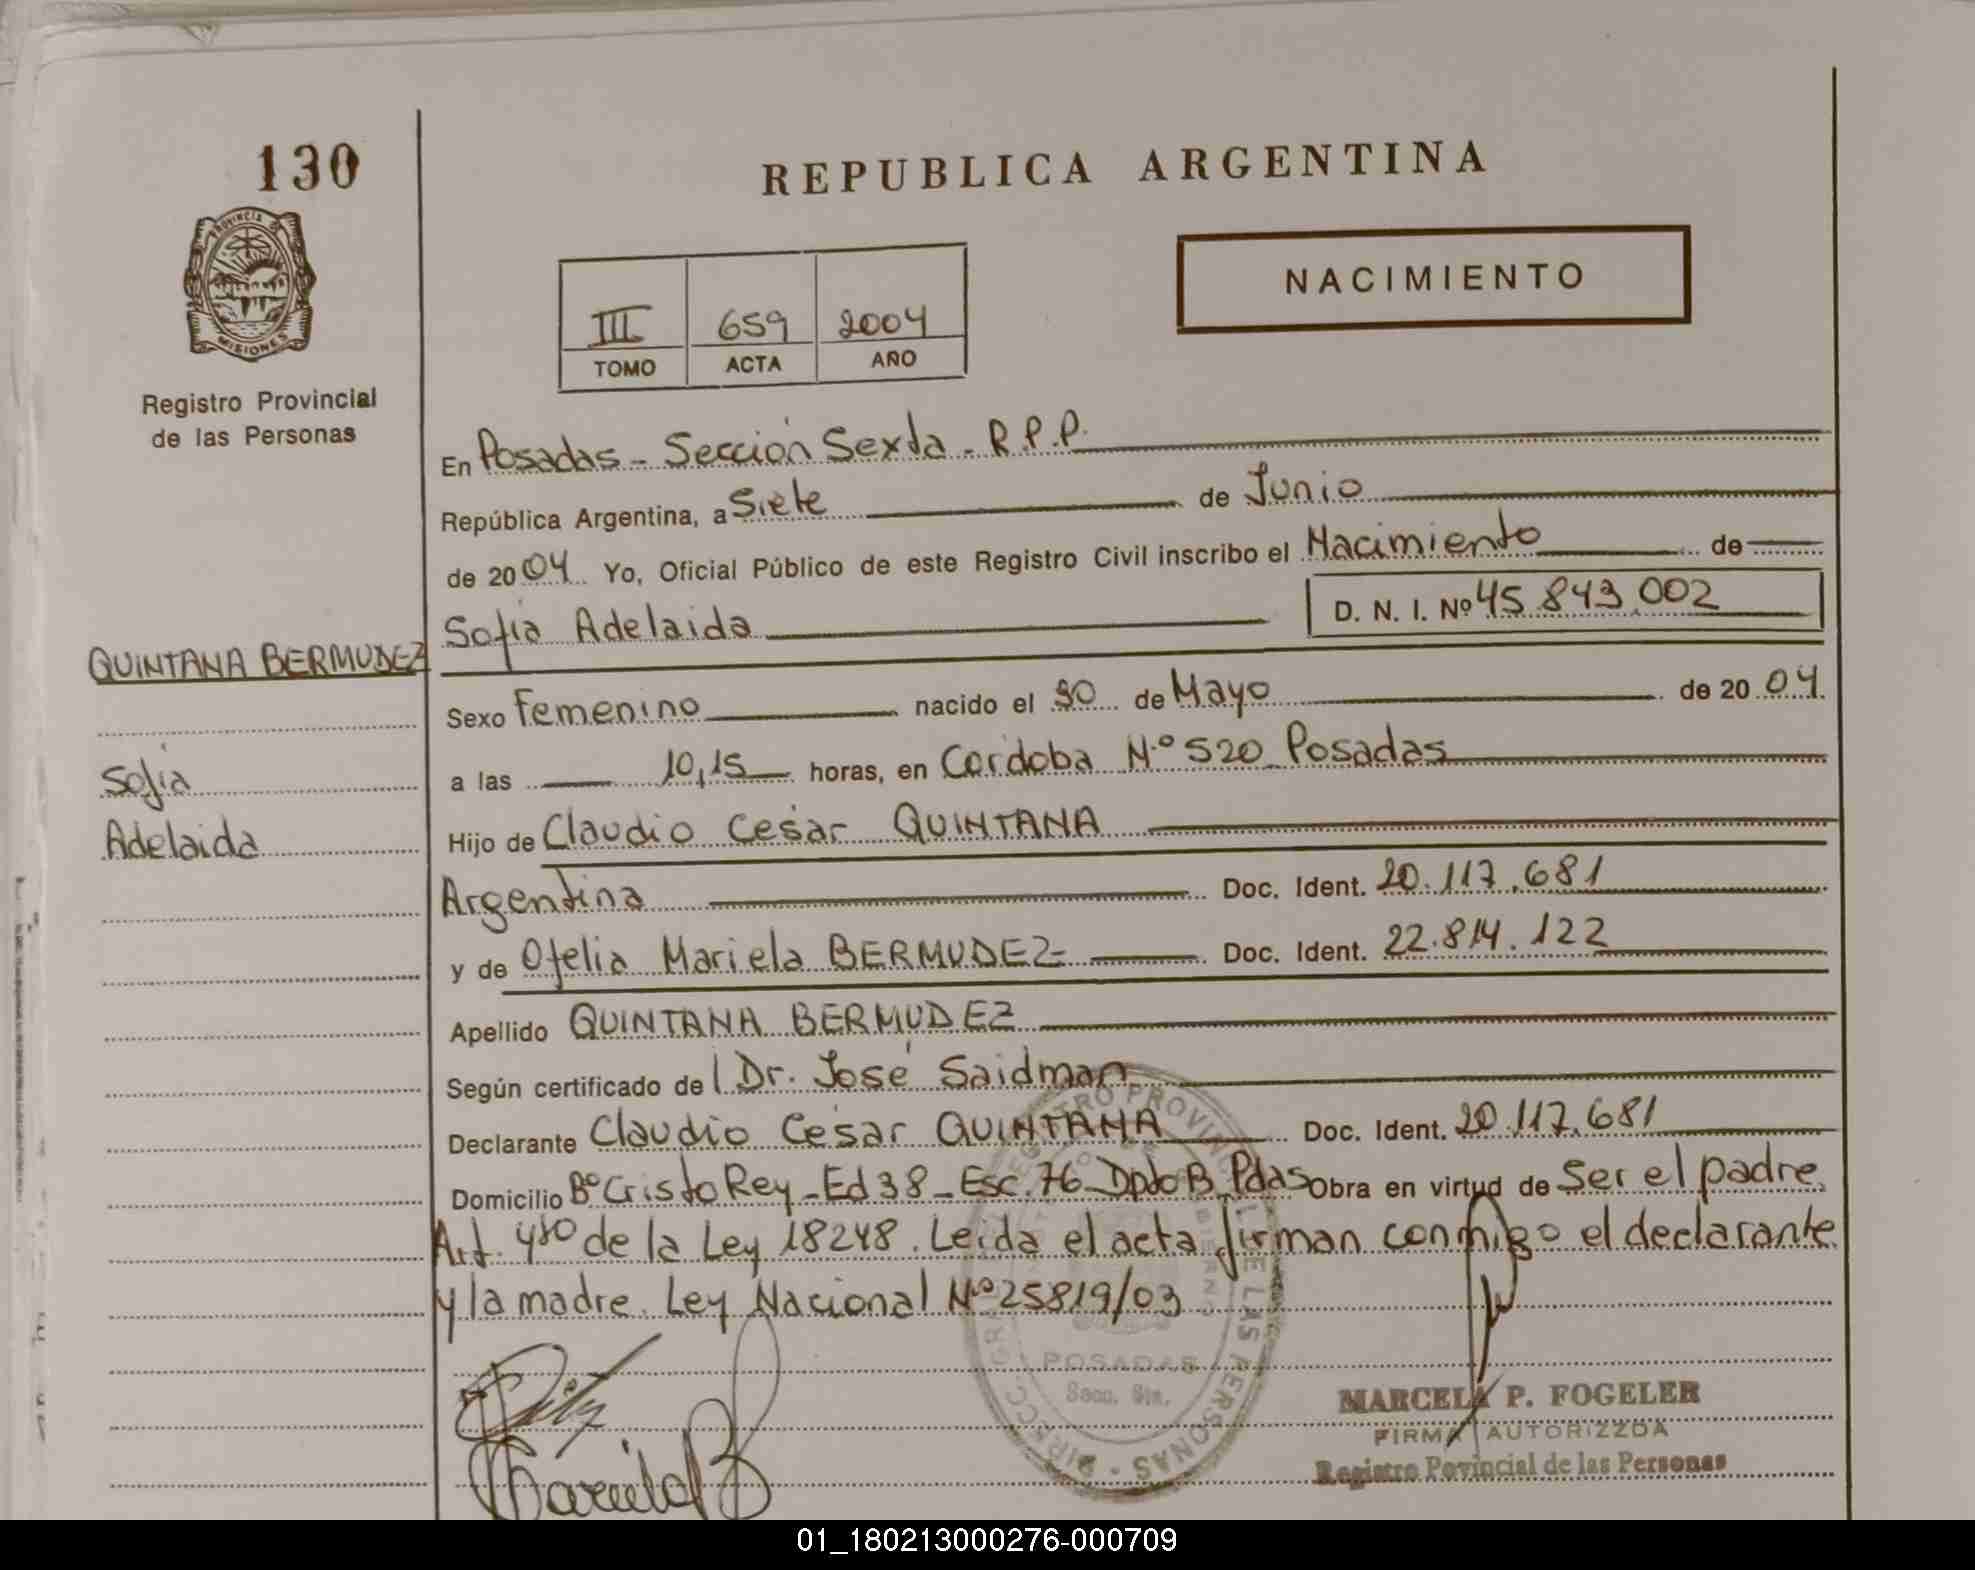 130
REPUBLICA ARGENTINA
PROVINCIA DE
MISIONES
Registro Provincial
de las Personas
NACIMIENTO
III 659 2004
TOMO ACTA AÑO
En Posadas - Sección Sexta - R.P.P.
República Argentina, a Siete de Junio
de 2004 Yo, Oficial Público de este Registro Civil inscribo el Nacimiento de
Sofia Adelaida D. N. I. Nº 45 843 002
QUINTANA BERMUDEZ
Sexo Femenino nacido el 30 de Mayo de 2004
Sofia
a las 10,15 horas, en Córdoba Nº 520 Posadas
Adelaida
Hijo de Claudio Cesar QUINTANA
Argentina Doc. Ident. 20.117.681
y de Ofelia Mariela BERMUDEZ Doc. Ident. 22.814.122
Apellido QUINTANA BERMUDEZ
Según certificado del Dr. José Saidman
Declarante Claudio Cesar QUINTANA Doc. Ident. 20.117.681
Domicilio Bº Cristo Rey - Ed 38 - Esc. 76 Dpto B Pdas Obra en virtud de Ser el padre.
Art. 4to de la Ley 18248. Leida el acta firman conmigo el declarante
y la madre. Ley Nacional Nº 25819/03
REGISTRO PROVINCIAL DE LAS PERSONAS
POSADAS
Secc. 6ta.
MARCELA P. FOGELER
FIRMA AUTORIZZDA
Registro Povincial de las Personas
01_180213000276-000709